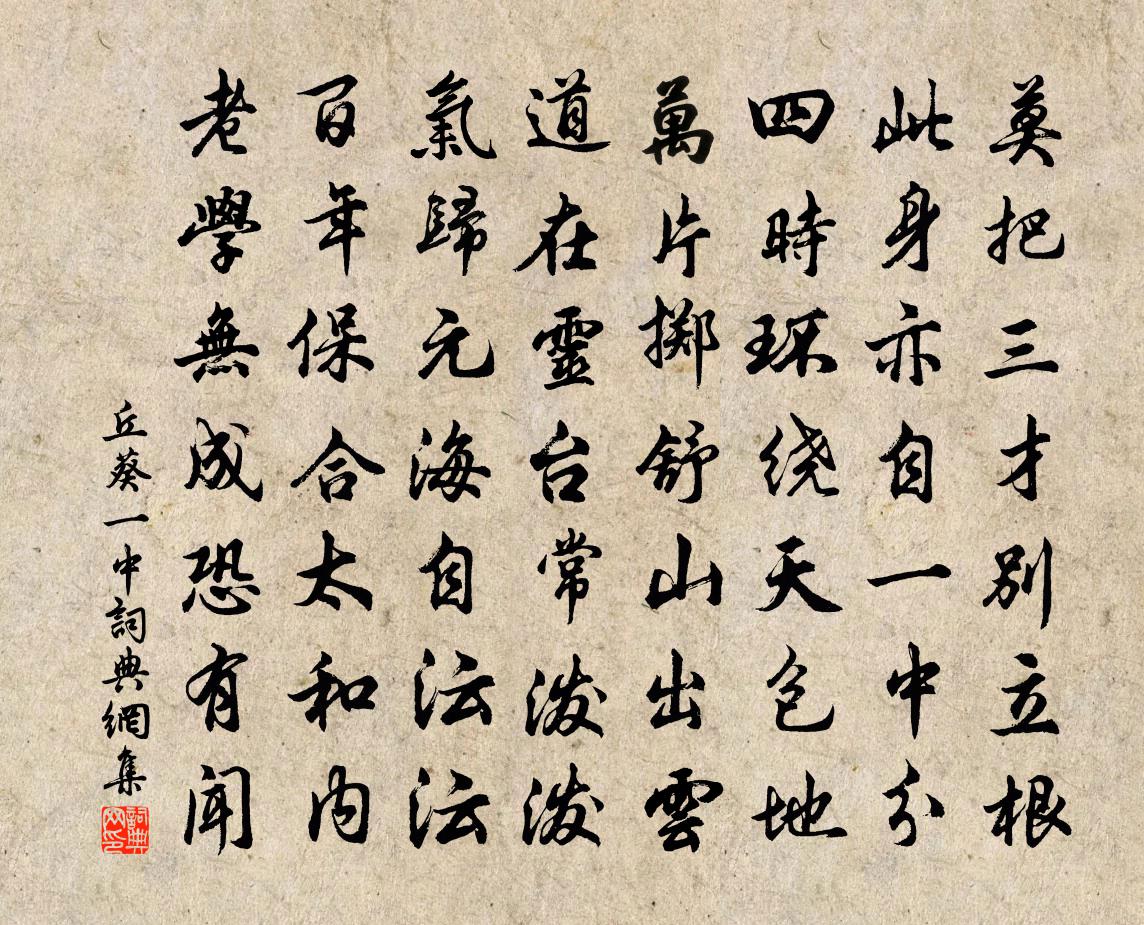 莫把三才別立根
此身亦自一中分
四時环绕天包地
萬片掷舒山出雲
道在靈台常泼泼
氣歸元海自沄沄
百年保合太和内
老學無成恐有闻
丘葵一中詞典網集
詞典网印